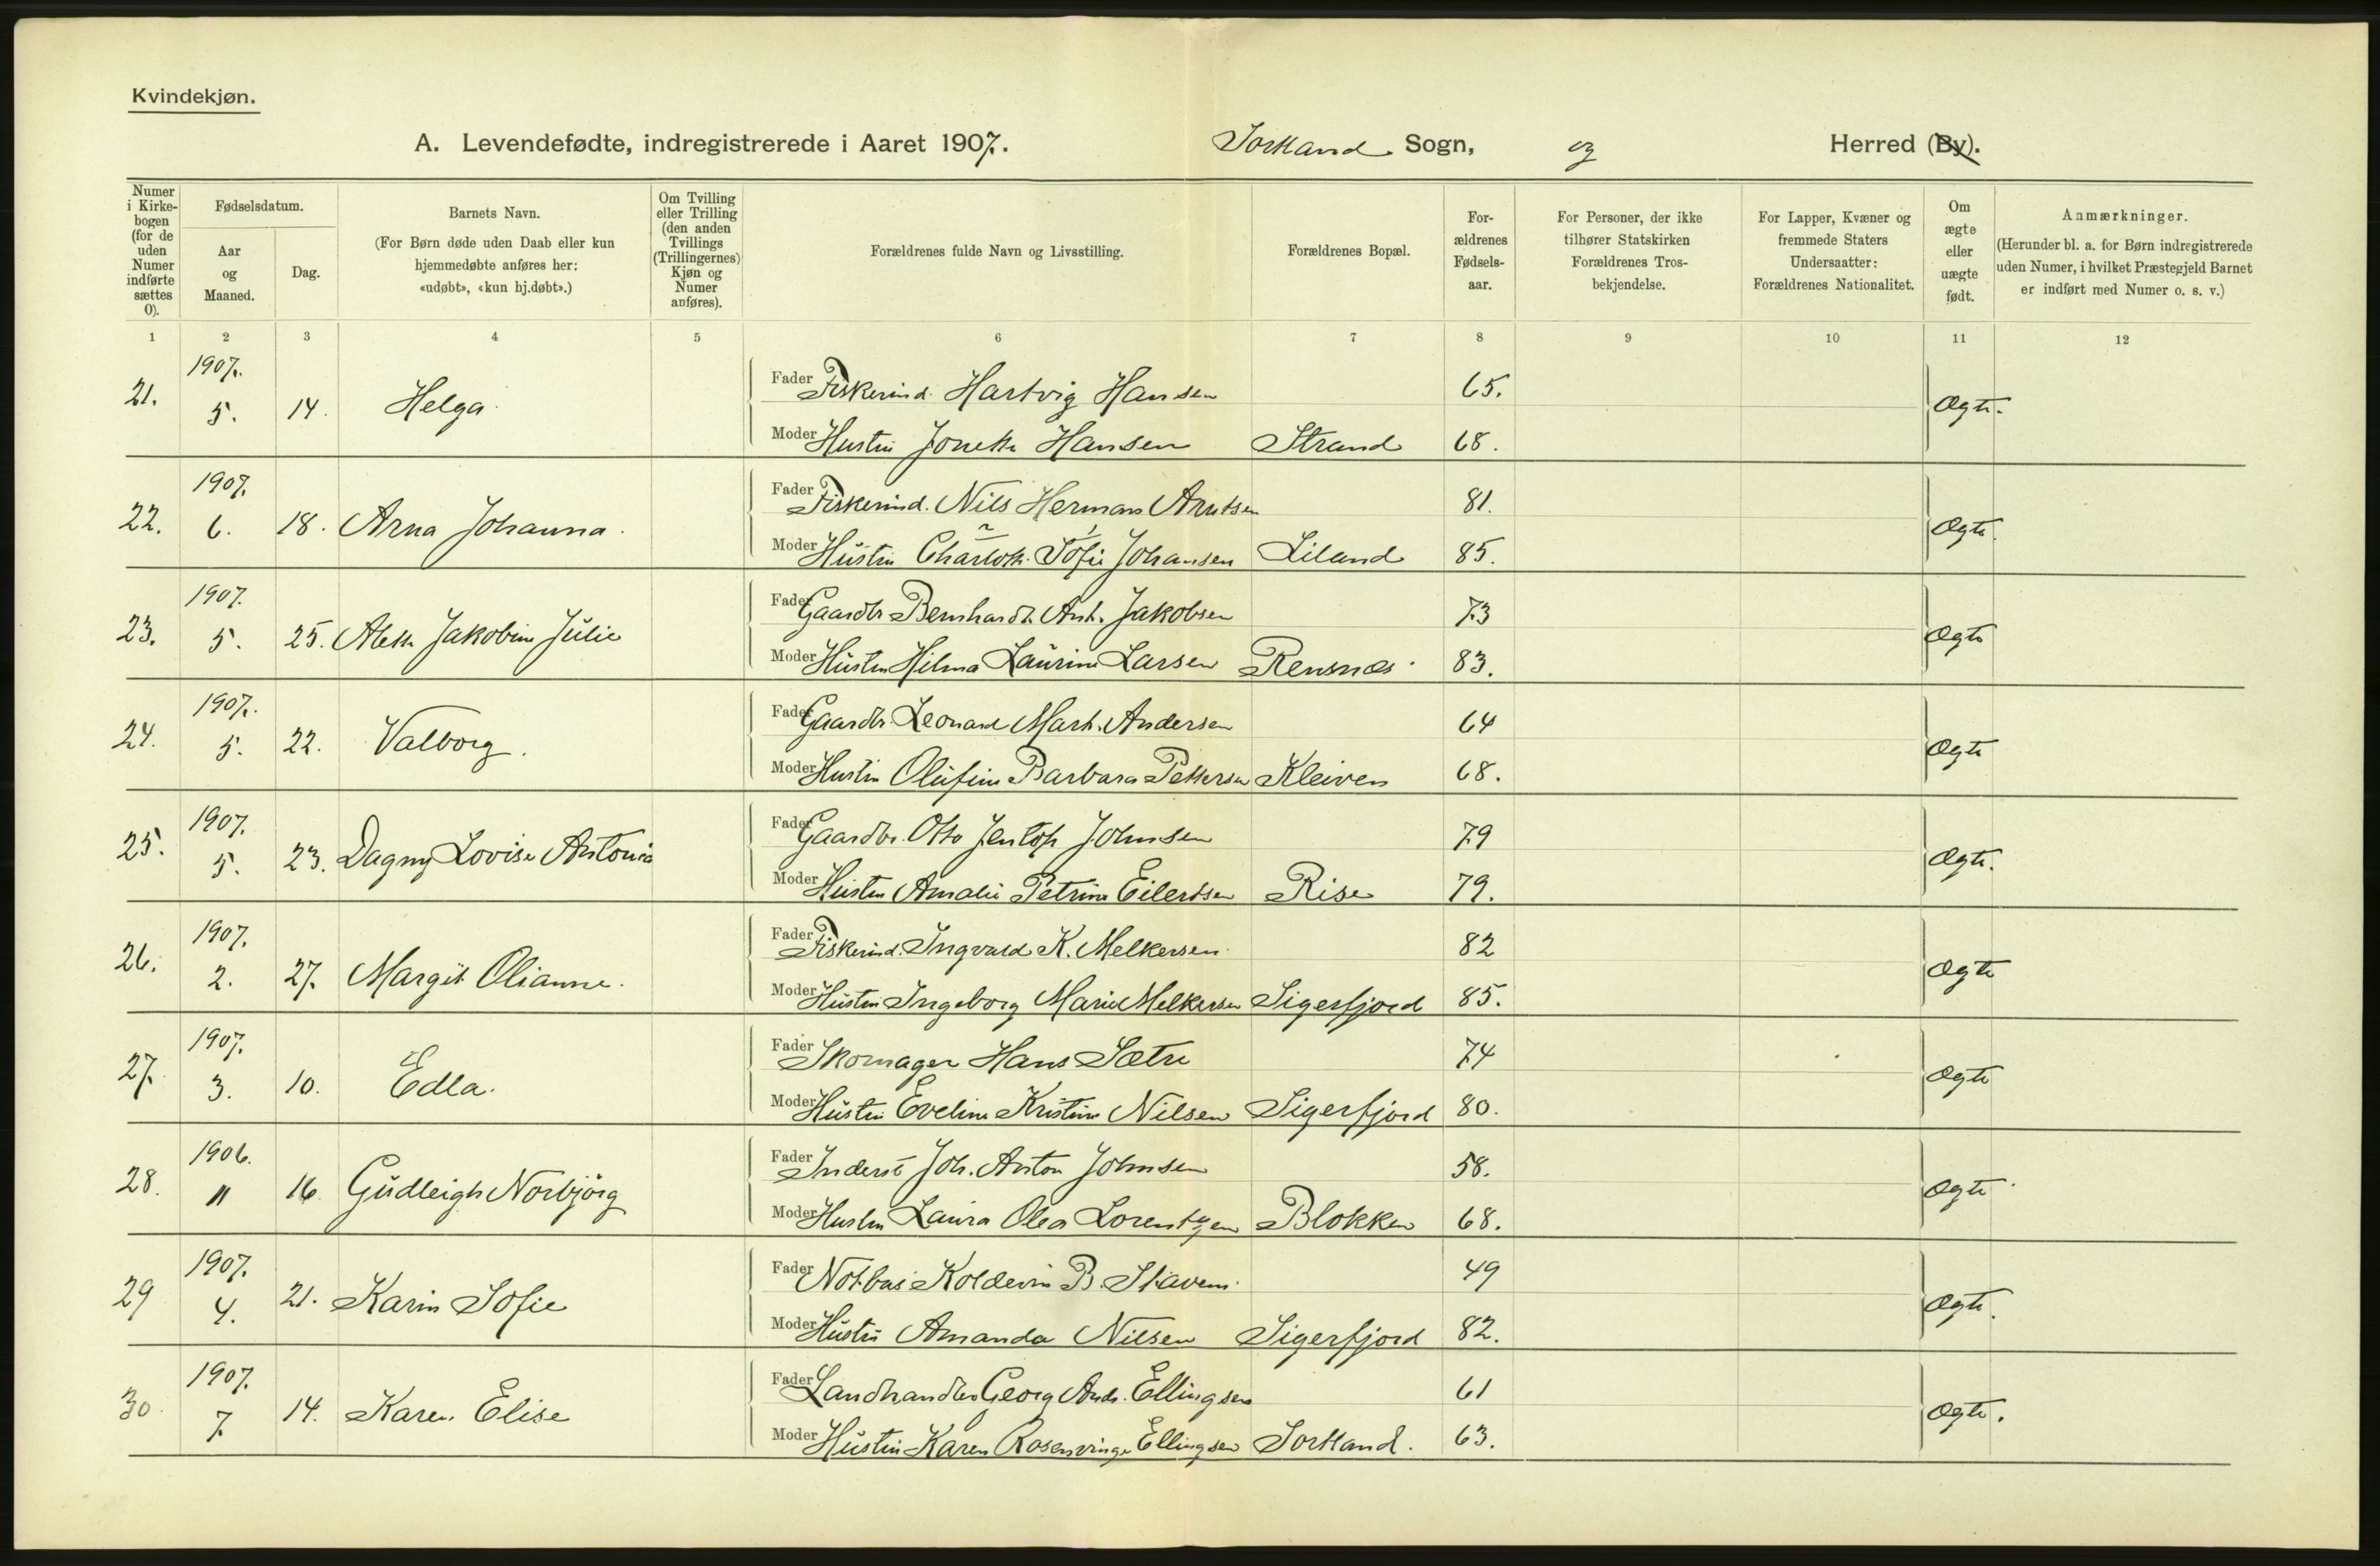 Kvindekjøn.
A. Levendefødte, indregistrerede i Aaret 1907. Sortland Sogn, og Herred (By).
Numer i Kirkebogen (for de uden Numer indførte sættes 0).
Fødselsdatum.
Aar og Maaned.
Dag.
Barnets Navn.
(For Børn døde uden Daab eller kun hjemmedøbte anføres her: «udøbt», «kun hj.døbt».)
Om Tvilling eller Trilling (den anden Tvillings (Trillingernes) Kjøn og Numer anføres).
Forældrenes fulde Navn og Livsstilling.
Forældrenes Bopæl.
Forældrenes Fødselsaar.
For Personer, der ikke tilhører Statskirken Forældrenes Trosbekjendelse.
For Lapper, Kvæner og fremmede Staters Undersaatter: Forældrenes Nationalitet.
Om ægte eller uægte født.
Anmærkninger.
(Herunder bl. a. for Børn indregistrerede uden Numer, i hvilket Præstegjeld Barnet er indført med Numer o. s. v.)
1 2 3 4 5 6 7 8 9 10 11 12
1907. Fader Fiskerind. Hartvig Hansen 65.
21. 5. 14. Helga Ægte.
Moder Hustru Jonette Hansen Strand 68.
1907. Fader Fiskerind. Nils Herman Arntsen 81.
22. 6. 18. Arna Johanna. Ægte.
Moder Hustru Charlotte Sofie Johansen Liland 85.
1907. Fader Gaardbr Bernhardt Ant. Jakobsen 73
23. 5. 25. Alette Jakobine Julie Ægte
Moder Hustru Hilma Laurine Larsen Rensnæs 83.
1907. Fader Gaardbr. Leonard Mart. Andersen 64
24. 5. 22. Valborg. Ægte
Moder Hustru Olufine Barbara Pettersen Kleiven 68.
1907. Fader Gaardbr. Otto Jentoft Johnsen 79
25. 5. 23. Dagny Lovise Antonia Ægte.
Moder Hustru Amalie Petrine Eilertsen Rise 79.
1907. Fader Fiskerind. Ingvald K. Melkersen 82
26. 2. 27. Margit Olianne. Ægte
Moder Hustru Ingeborg Marie Melkersen Sigerfjord 85.
1907. Fader Skomager Hans Sætre 74
27. 3. 10. Edla. Ægte
Moder Hustru Eveline Kristine Nilsen Sigerfjord 80.
1906. Fader Inderst Joh. Anton Johnsen 58.
28. 11 16 Gudleigh Norbjörg Ægte
Moder Hustru Laura Olea Lorentzen Blokken 68.
1907. Fader Notbas Koldevin B. 49
29 4. 21. Karin Sofie Ægte.
Moder Hustru Amanda Nilsen Sigerfjord 82.
1907. Fader Landhandler Georg Andr. Ellingsen 61
30. 7. 14. Karen Elise Ægte.
Moder Hustru Karen Rosenvinge Ellingsen Sortland. 63.